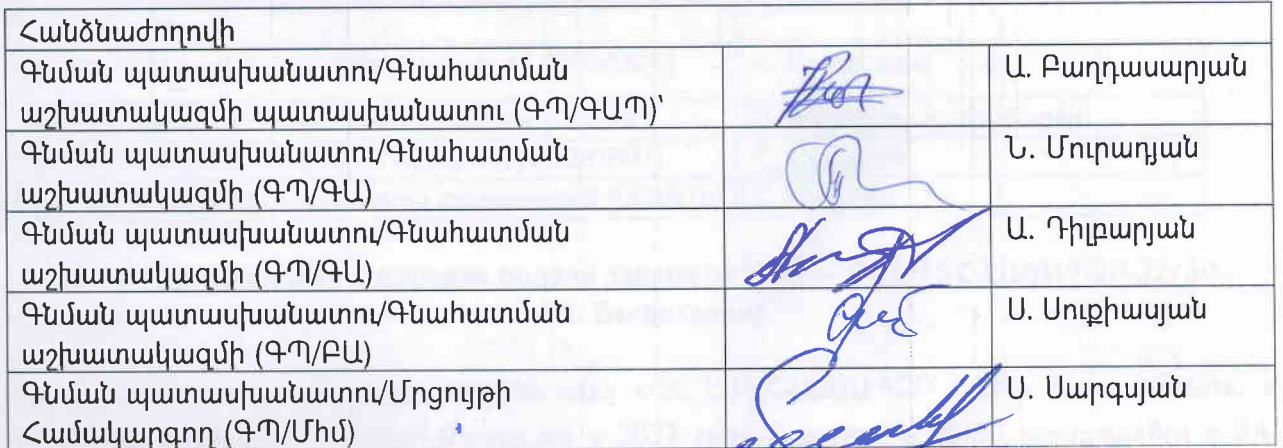 Հանձնաժողովի
Գնման պատասխանատու/Գնահատման
աշխատակազմի պատասխանատու (ԳՊ/ԳԱՊ)՝
Ա. Բաղդասարյան
Գնման պատասխանատու/Գնահատման
աշխատակազմի (ԳՊ/ԳԱ)
Ն. Մուրադյան
Գնման պատասխանատու/Գնահատման
աշխատակազմի (ԳՊ/ԳԱ)
Ա. Դիլբարյան
Գնման պատասխանատու/Գնահատման
աշխատակազմի (ԳՊ/ԲԱ)
Ս. Սուքիասյան
Գնման պատասխանատու/Մրցույթի
Համակարգող (ԳՊ/Մհմ)
Ս. Սարգսյան